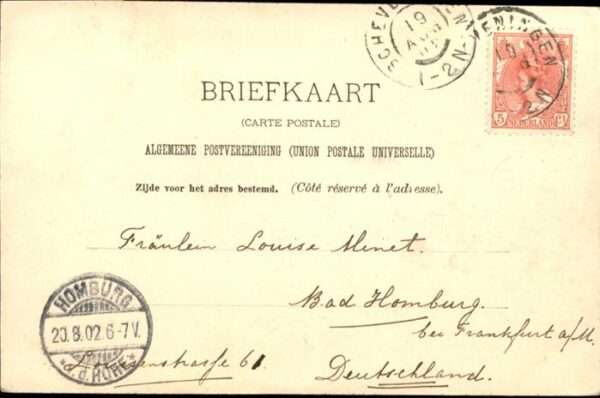 SCHEVENINGEN
19
1-2N
VENINGEN
19
2N
5 NEDERLAND ct
BRIEFKAART
(CARTE POSTALE)
ALGEMEENE POSTVEREENIGING (UNION POSTALE UNIVERSELLE)
Zijde voor het adres bestemd. (Côté réservé à l'adresse).
Fräulein Louise Minet.
Bad Homburg.
bei Frankfurt a/M.
61
Deutschland.
HOMBURG
20.8.02.6-7V.
*v.d.HÖHE*